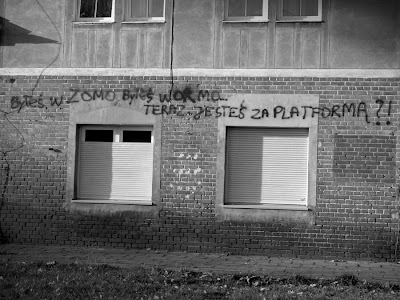 BYŁEŚ W ZOMO, BYŁEŚ W ORMO...
TERAZ JESTEŚ ZA PLATFORMĄ?!